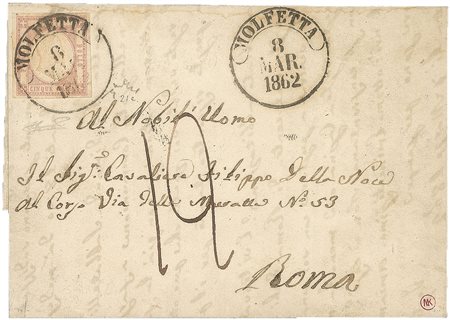 MOLFETTA
6
MOLFETTA
8
MAR.
1862
CINQUE
Al Nobil Uomo
19
Il Sig.r Cavaliere Filippo Della Noce
al Corso Via delle Muratte N.o 53
Roma
NK